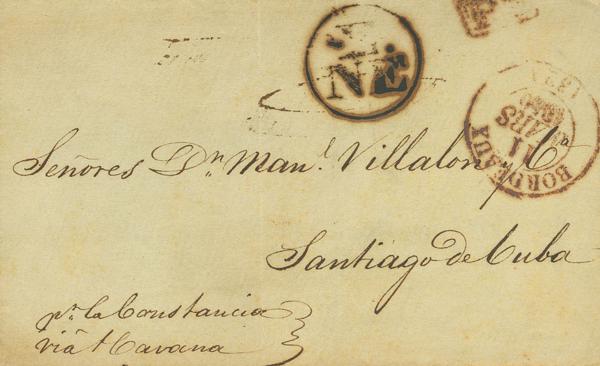 NE
BORDEAUX
11
MARS
Señores Dn. Manl. Villalon y Ca
Santiago de Cuba
pr. la Constancia
viâ Havana